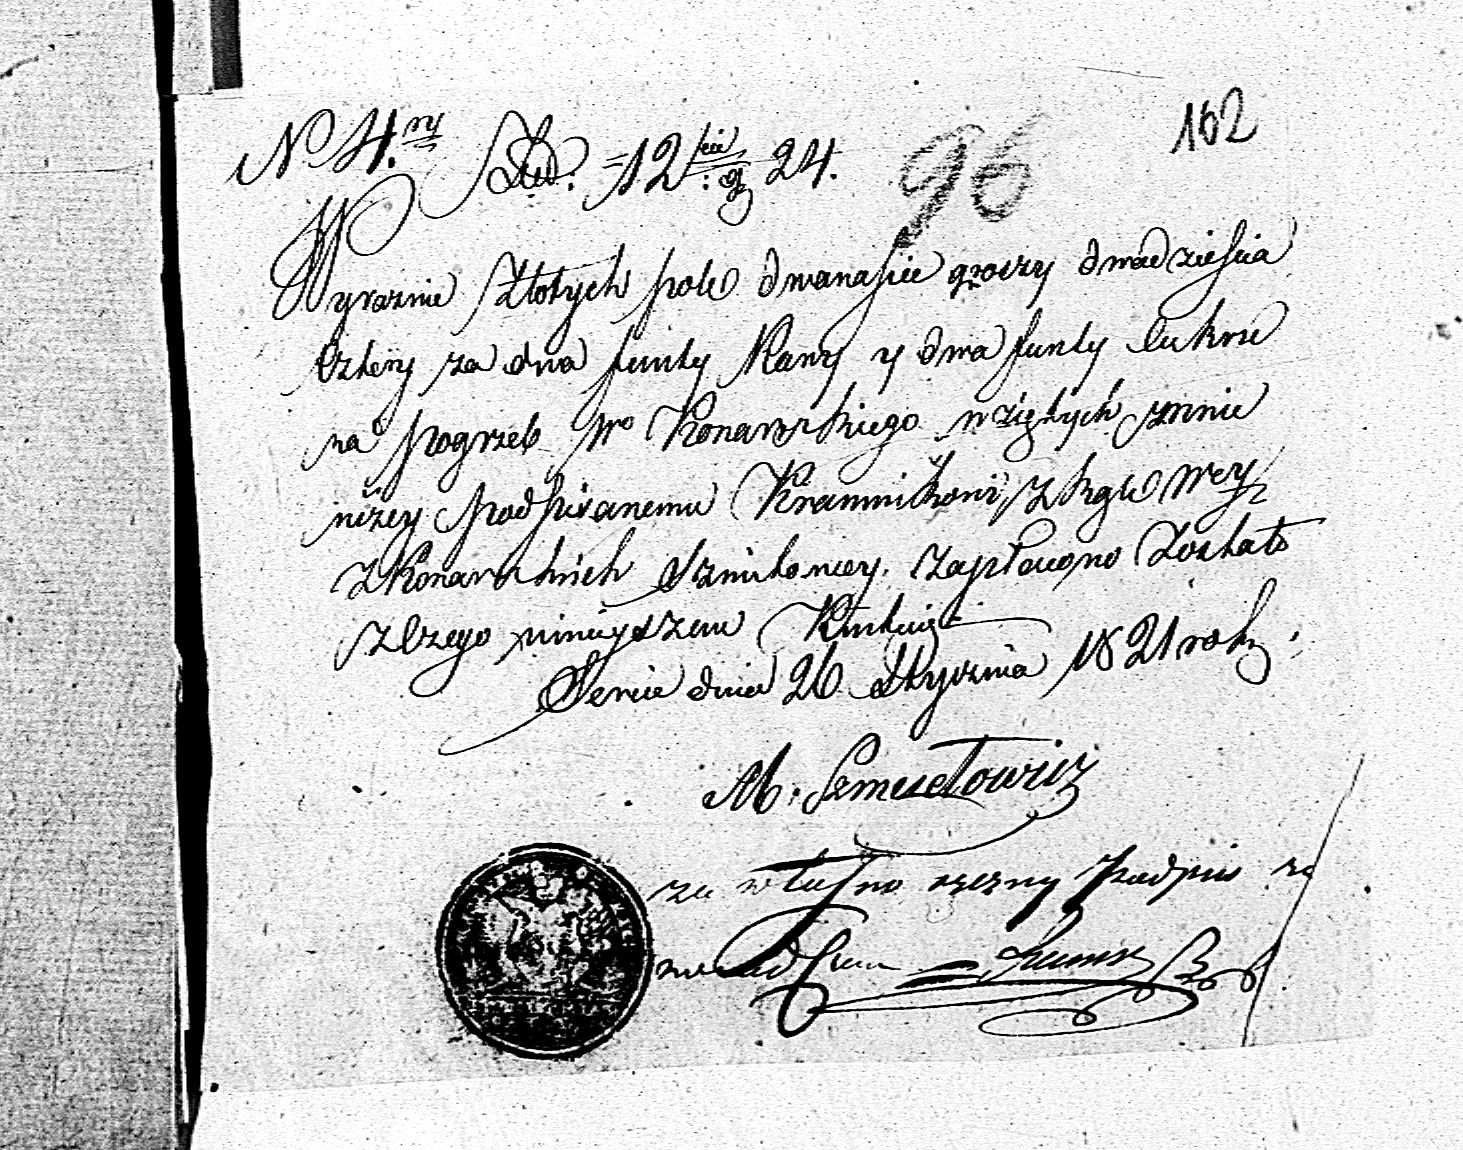 No 4.ry 12 gr 24. 96 162
Wyraznie Złotych pols dwanaście groszy dwadzieścia
cztery za dwa funty Kawy y dwa funty Cukru
na pogrzeb Wo Konarskiego wziętych zemnie
niżey podpisanemu Kramnikowi z ręk Wey
z Konarskich zapłacono zostało
z czego ninieyszem Kwituię
Sereie dnia 26 Stycznia 1821 roku.
M. Szmuelowicz
za własno ręczny Podpis